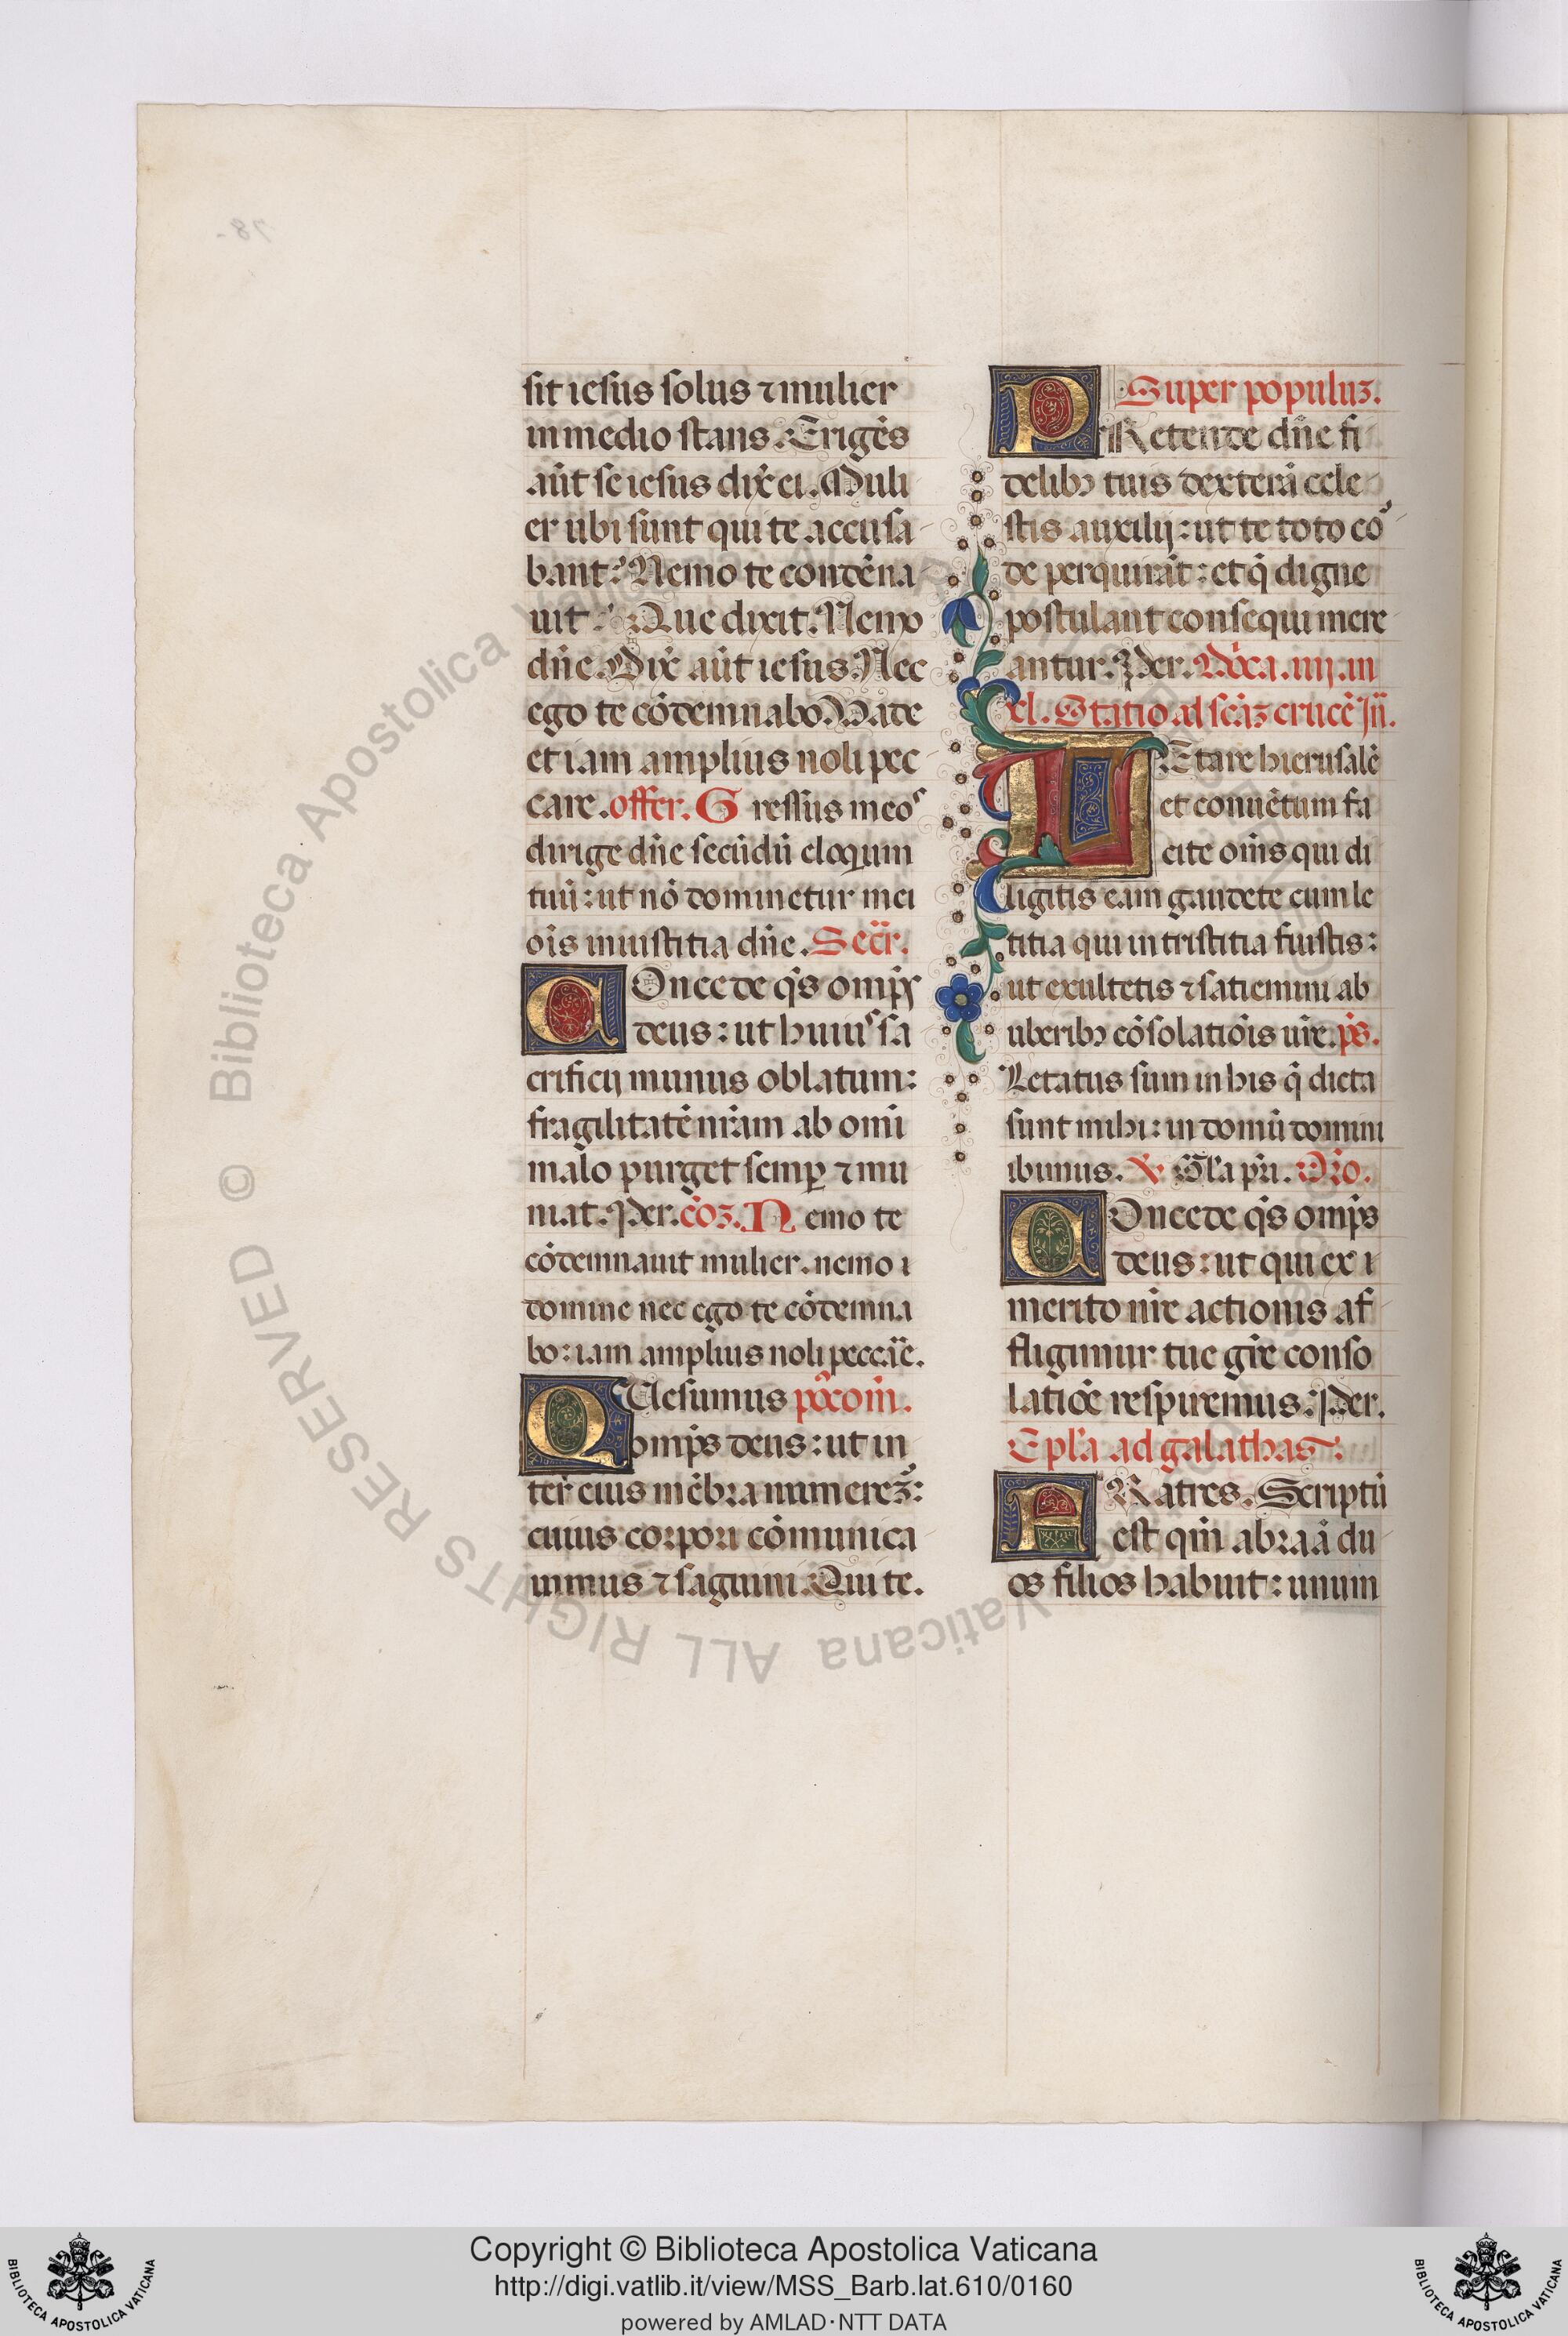 sit iesus solus ⁊ mulier
in medio stans. Erigēs
aūt se iesus dix̄ ei. Muli
er ubi sunt qui te accusa
bant? Nemo te condēna
uit? Que dixit. Nemo
dn̄e. Dix̄ aūt iesus. Nec
ego te cōdemnabo. Vade
et iam amplius noli pec
care. offer. Gressus meos
dirige dn̄e secūdū eloquium
tuū: ut nō dominetur mei
oīs iniustitia dn̄e. Secr̄.
Oncede q̄s omp̄s
deus: ut huius sa
crificij munus oblatum:
fragilitatē nr̄am ab omī
malo purget semp̱ ⁊ mu
niat. Per. cōz. Nemo te
cōdemnauit mulier. nemo
domine nec ego te cōdemna
bo: iam amplius noli peccār̄e.
Vesumus pꝯ̄com̄.
omp̄s deus: ut in
ter eius mēbra numerez̄:
cuius corpori cōmunica
mus ⁊ saguini. Qui te.
Super populuz.
Retende dn̄e fi
delibꝫ tuis dexterā cele
stis auxilij: ut te toto cor
de perquirāt: et q̄ digne
postulant consequi mere
antur. Per. Dōca. iiij. in
xl. Statio ad scāz crucē. Iñ.
Etare hierusalē
et conuētum fa
cite om̄s qui di
ligitis eam gaudete cum le
titia qui in tristitia fuistis:
ut exultetis ⁊ satiemini ab
uberibꝫ cōsolatiōis ur̄e. p̄s.
Letatus sum in his q̄ dicta
sunt mihi: in domū domini
ibimus. V̄. Gl̄a pr̄i. Or̄o.
Oncede q̄s omp̄s
deus: ut qui ex
merito nr̄e actionis af
fligimur tue gr̄e conso
latiōe respiremus: Per.
Epl̄a ad galathas.
Ratres. Scriptū
est qm̄ abraā du
os filios habuit: unum
© Biblioteca Apostolica Vaticana ALL RIGHTS RESERVED
Copyright © Biblioteca Apostolica Vaticana
http://digi.vatlib.it/view/MSS_Barb.lat.610/0160
powered by AMLAD·NTT DATA
BIBLIOTECA APOSTOLICA VATICANA
BIBLIOTECA APOSTOLICA VATICANA